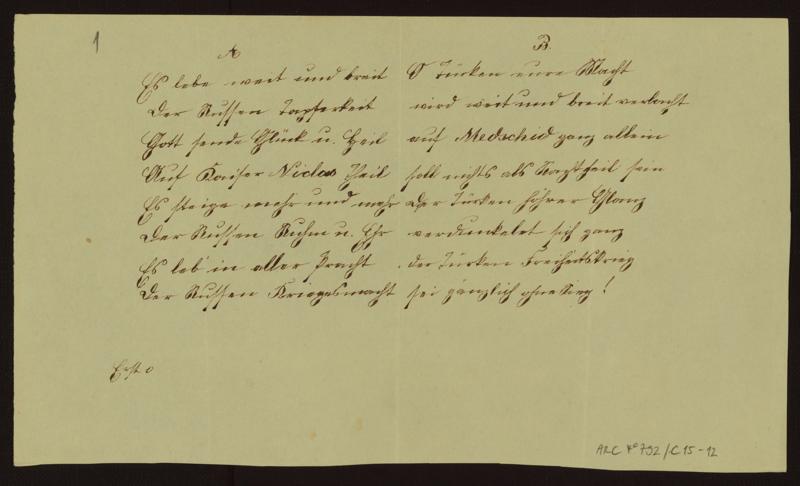 1
A
Es lebe weit und breit
Der Russen Tapferkeit
Gott sende Glück u. Heil
Auf Kaiser Niclas Theil
Es steige mehr und mehr
Der Russen Ruhm u. Ehr
Es leb' in aller Pracht
Der Russen Kriegesmacht
B.
O Türken eure Macht
wird weit und breit verlacht
auf Medschid ganz allein
soll nichts als Nachtheil sein
Der Türken höhrer Glanz
verdunkelet sich ganz
der Türken Freiheitskrieg
sei gänzlich ohne Sieg!
ARC 4° 792/C15-12